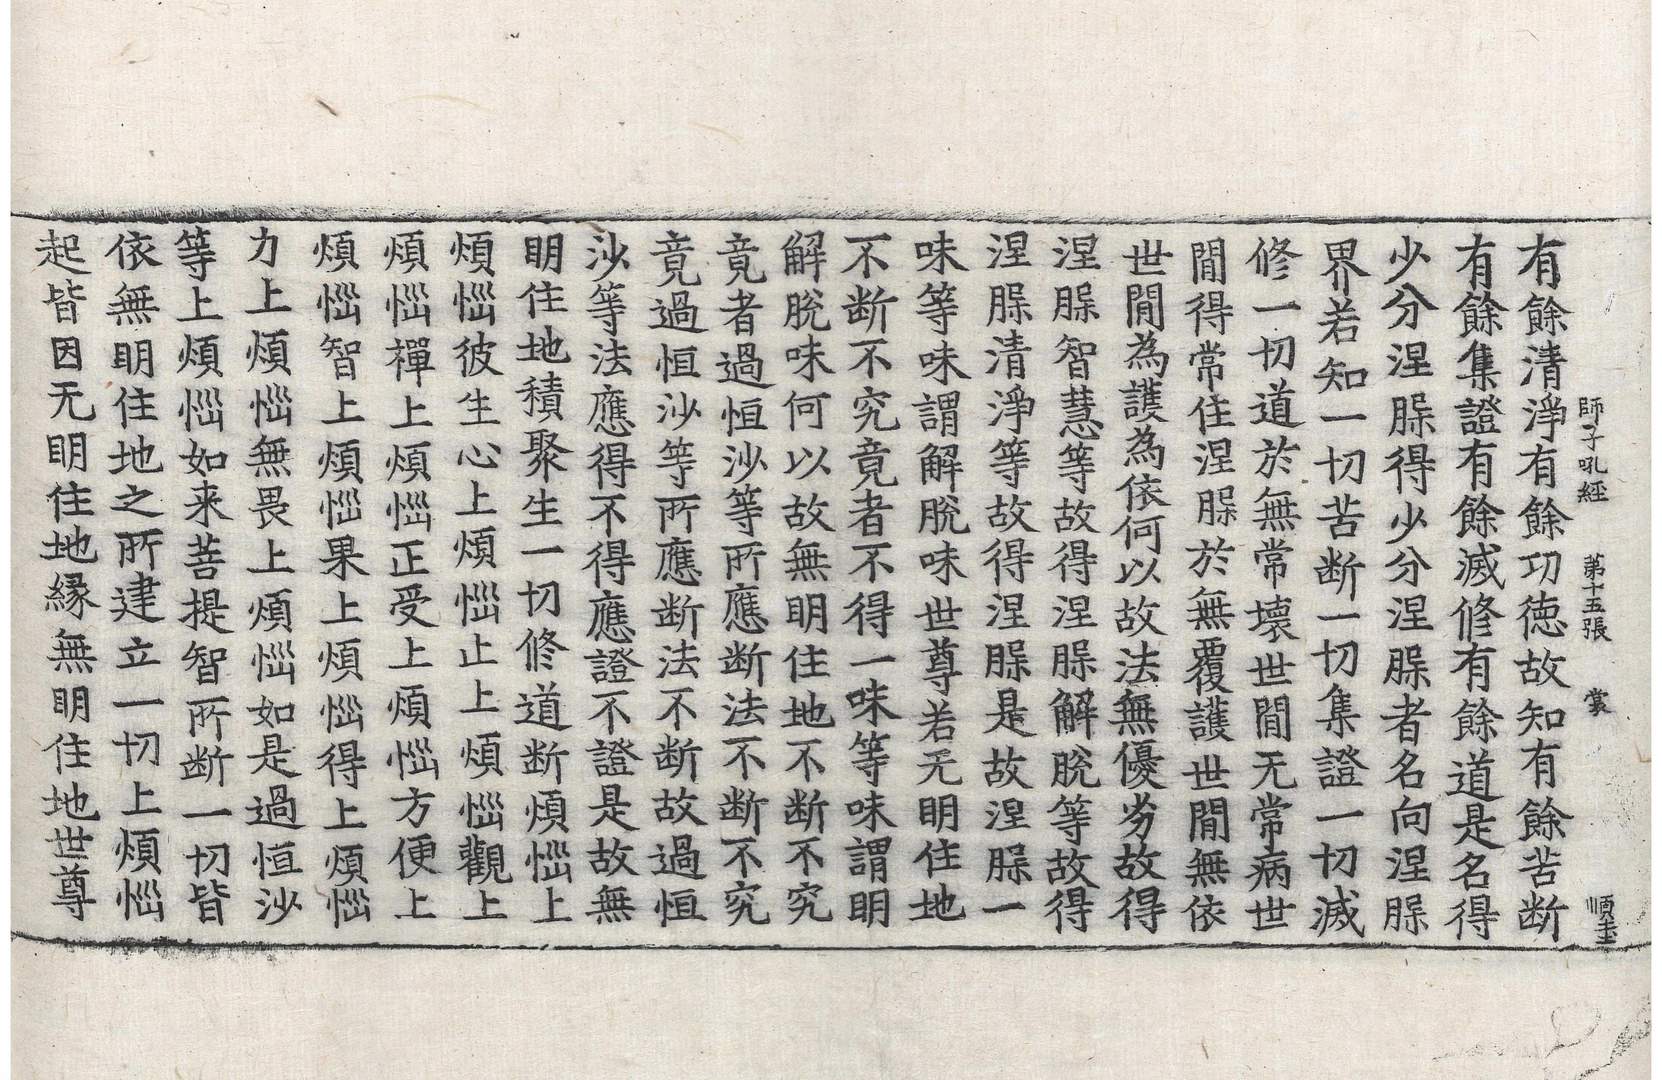 師子吼經 第十五張 裳 順圭
有餘清淨有餘功徳故知有餘苦断
有餘集證有餘滅修有餘道是名得
少分涅槃得少分涅槃者名向涅槃
界若知一切苦断一切集證一切滅
修一切道於無常壊世間无常病世
間得常住涅槃於無覆護世間無依
世間為護為依何以故法無優劣故得
涅槃智慧等故得涅槃解脫等故得
涅槃清淨等故得涅槃是故涅槃一
味等味謂解脫味世尊若无明住地
不断不究竟者不得一味等味謂明
解脫味何以故無明住地不断不究
竟者過恒沙等所應断法不断不究
竟過恒沙等所應断法不断故過恒
沙等法應得不得應證不證是故無
明住地積聚生一切修道断煩惱上
煩惱彼生心上煩惱止上煩惱觀上
煩惱禪上煩惱正受上煩惱方便上
煩惱智上煩惱果上煩惱得上煩惱
力上煩惱無畏上煩惱如是過恒沙
等上煩惱如来菩提智所断一切皆
依無明住地之所建立一切上煩惱
起皆因无明住地縁無明住地世尊